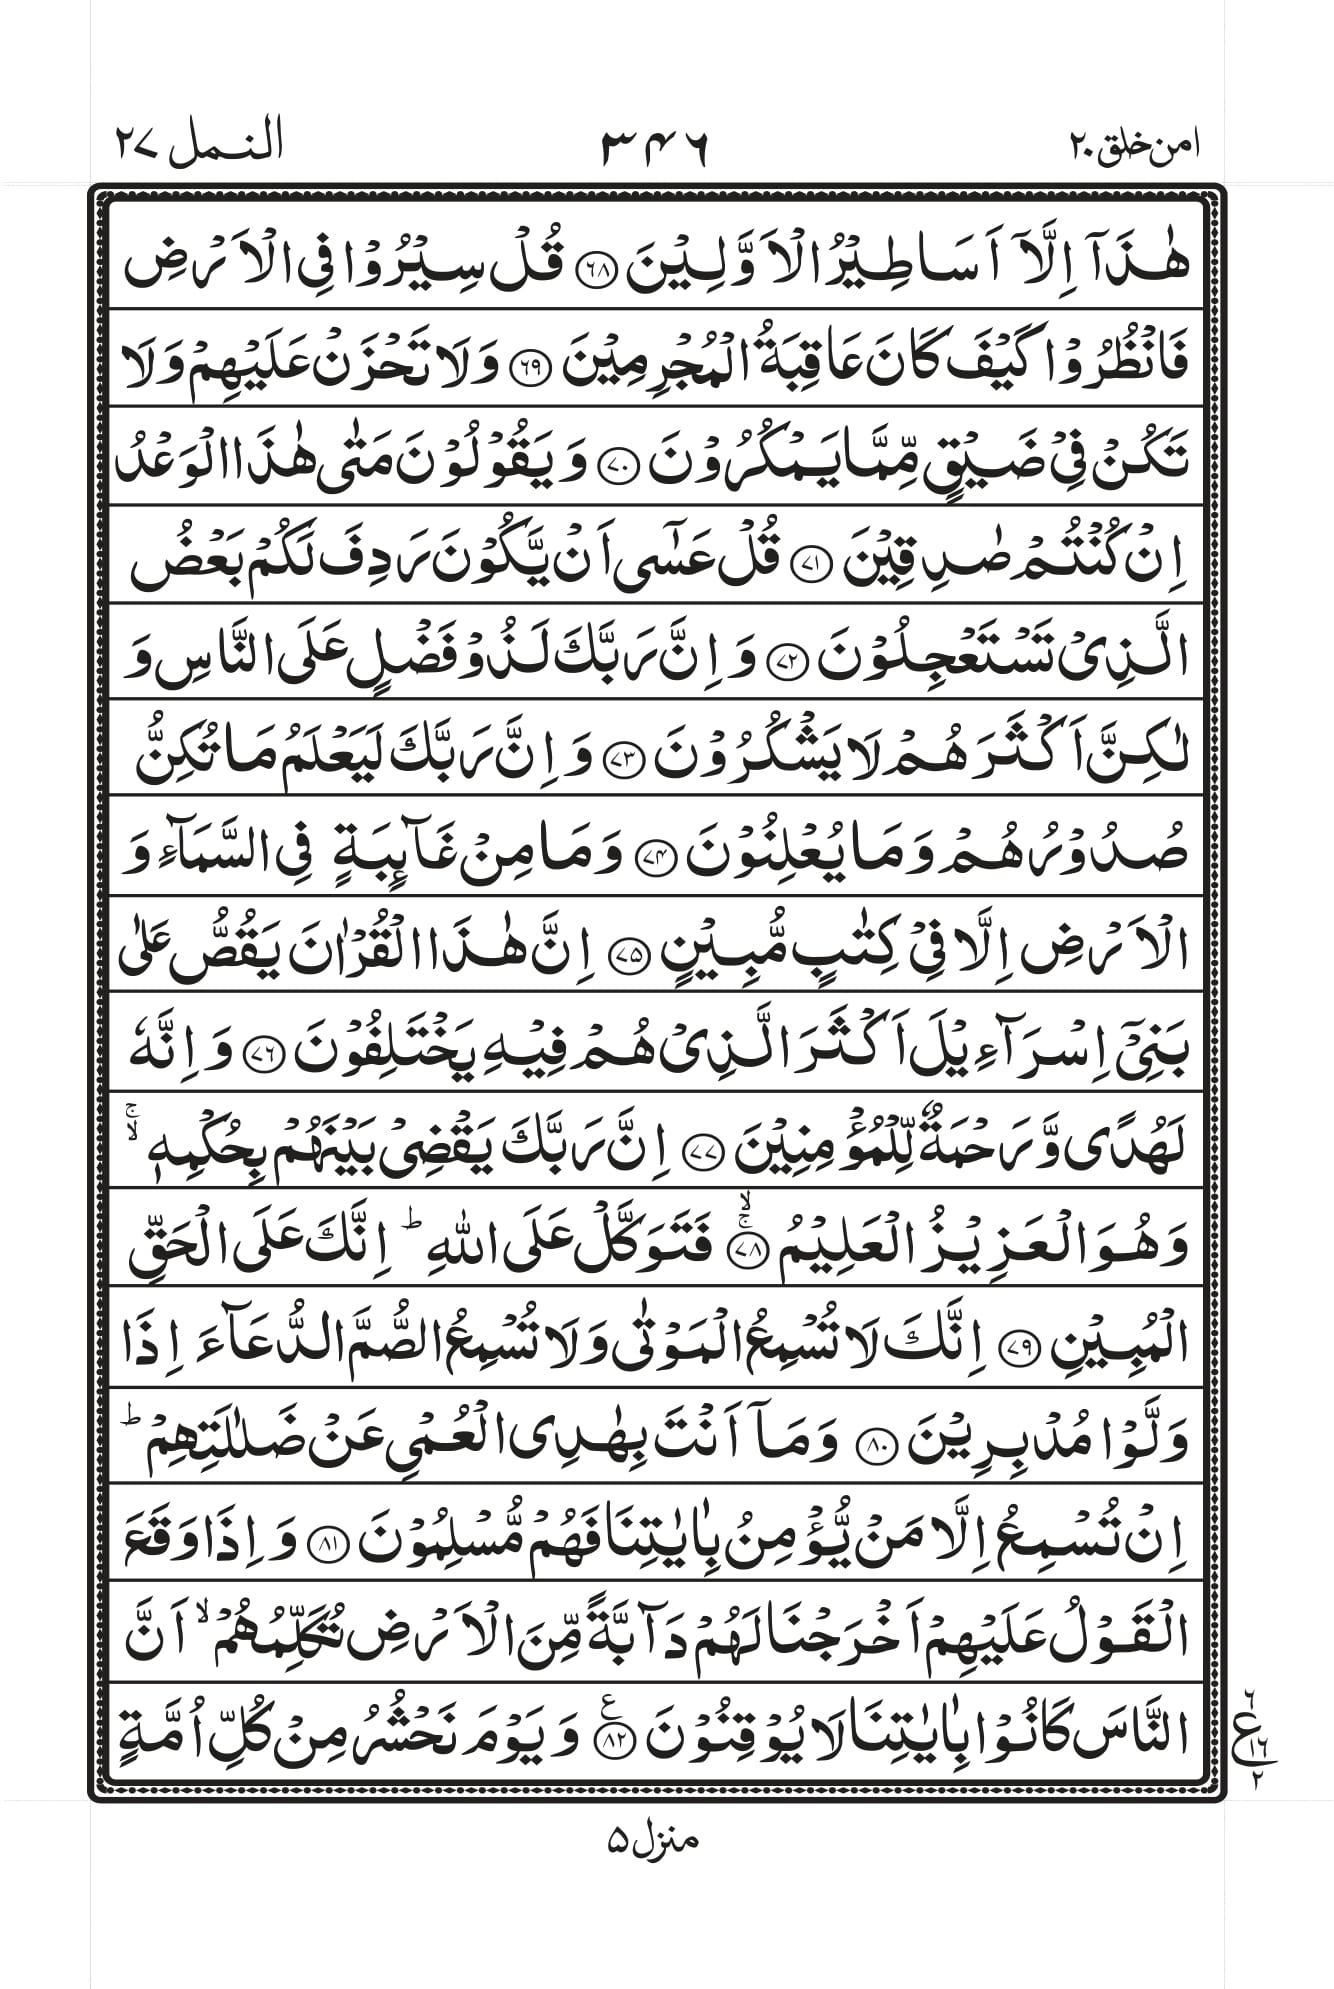 امن خلق ۲۰ ۳۴۶ النمل ۲۷
هٰذَاۤ اِلَّاۤ اَسَاطِیْرُ الْاَوَّلِیْنَ ﴿۶۸﴾ قُلْ سِیْرُوْا فِی الْاَرْضِ
فَانْظُرُوْا كَیْفَ كَانَ عَاقِبَةُ الْمُجْرِمِیْنَ ﴿۶۹﴾ وَلَا تَحْزَنْ عَلَیْهِمْ وَلَا
تَكُنْ فِیْ ضَیْقٍ مِّمَّا یَمْكُرُوْنَ ﴿۷۰﴾ وَیَقُوْلُوْنَ مَتٰی هٰذَا الْوَعْدُ
اِنْ كُنْتُمْ صٰدِقِیْنَ ﴿۷۱﴾ قُلْ عَسٰۤی اَنْ یَّكُوْنَ رَدِفَ لَكُمْ بَعْضُ
الَّذِیْ تَسْتَعْجِلُوْنَ ﴿۷۲﴾ وَاِنَّ رَبَّكَ لَذُوْ فَضْلٍ عَلَی النَّاسِ وَ
لٰكِنَّ اَكْثَرَهُمْ لَا یَشْكُرُوْنَ ﴿۷۳﴾ وَاِنَّ رَبَّكَ لَیَعْلَمُ مَا تُكِنُّ
صُدُوْرُهُمْ وَمَا یُعْلِنُوْنَ ﴿۷۴﴾ وَمَا مِنْ غَآىِٕبَةٍ فِی السَّمَآءِ وَ
الْاَرْضِ اِلَّا فِیْ كِتٰبٍ مُّبِیْنٍ ﴿۷۵﴾ اِنَّ هٰذَا الْقُرْاٰنَ یَقُصُّ عَلٰی
بَنِیْۤ اِسْرَآءِیْلَ اَكْثَرَ الَّذِیْ هُمْ فِیْهِ یَخْتَلِفُوْنَ ﴿۷۶﴾ وَاِنَّهٗ
لَهُدًی وَّرَحْمَةٌ لِّلْمُؤْمِنِیْنَ ﴿۷۷﴾ اِنَّ رَبَّكَ یَقْضِیْ بَیْنَهُمْ بِحُكْمِهٖ ۙۚ
وَهُوَ الْعَزِیْزُ الْعَلِیْمُ ﴿۷۸﴾ۙۚ فَتَوَكَّلْ عَلَی اللّٰهِ ؕ اِنَّكَ عَلَی الْحَقِّ
الْمُبِیْنِ ﴿۷۹﴾ اِنَّكَ لَا تُسْمِعُ الْمَوْتٰی وَلَا تُسْمِعُ الصُّمَّ الدُّعَآءَ اِذَا
وَلَّوْا مُدْبِرِیْنَ ﴿۸۰﴾ وَمَاۤ اَنْتَ بِهٰدِی الْعُمْیِ عَنْ ضَلٰلَتِهِمْ ؕ
اِنْ تُسْمِعُ اِلَّا مَنْ یُّؤْمِنُ بِاٰیٰتِنَا فَهُمْ مُّسْلِمُوْنَ ﴿۸۱﴾ وَاِذَا وَقَعَ
الْقَوْلُ عَلَیْهِمْ اَخْرَجْنَا لَهُمْ دَآبَّةً مِّنَ الْاَرْضِ تُكَلِّمُهُمْ ۙ اَنَّ
النَّاسَ كَانُوْا بِاٰیٰتِنَا لَا یُوْقِنُوْنَ ﴿۸۲﴾ع وَیَوْمَ نَحْشُرُ مِنْ كُلِّ اُمَّةٍ
۶ ع ۱۶ ۲
منزل ۵